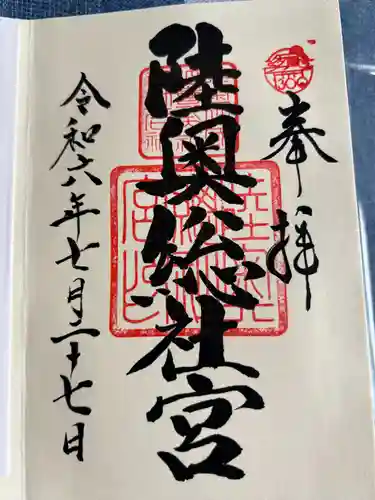 奉拝
陸奥総社宮
令和六年七月二十七日